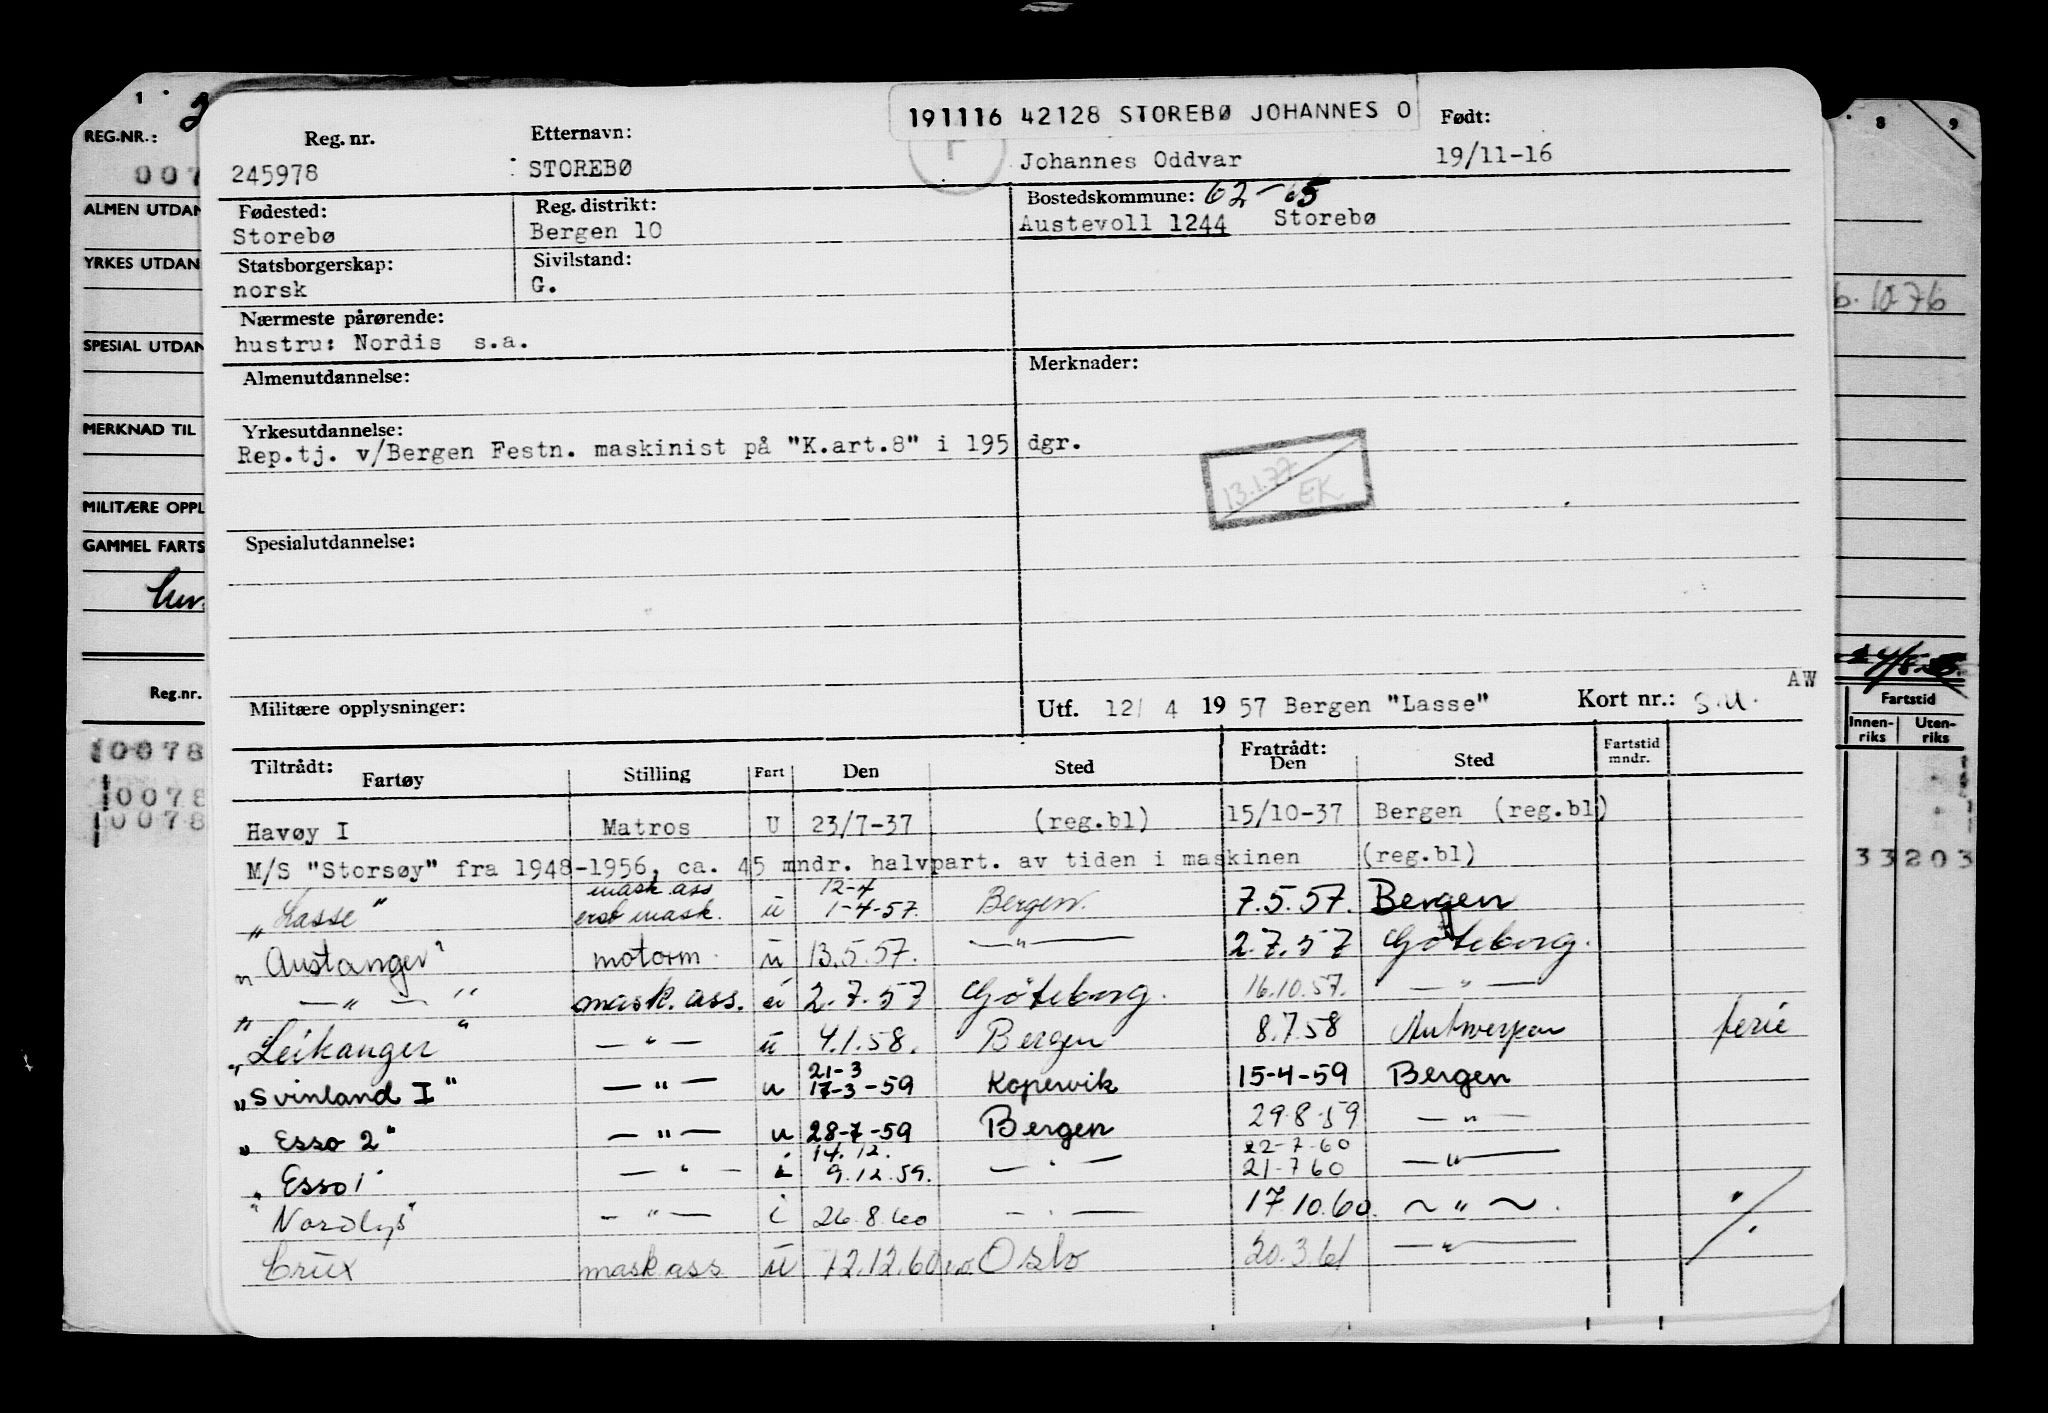 191116 42128 STOREBØ JOHANNES O
Reg. nr. Etternavn: Født:
245978 STOREBØ Johannes Oddvar 19/11-16
Fødested: Reg. distrikt: Bostedskommune: 62-65
Storebø Bergen 10 Austevoll 1244 Storebø
Statsborgerskap: Sivilstand:
norsk G.
Nærmeste pårørende:
hustru: Nordis s.a.
Almenutdannelse: Merknader:
Yrkesutdannelse:
Rep.tj. v/Bergen Festn. maskinist på "K.art.8" i 195 dgr.
13.1.77
EK
Spesialutdannelse:
AW
Militære opplysninger: Utf. 12/ 4 1957 Bergen "Lasse" Kort nr.: S.U.
Tiltrådt: Fratrådt:
Fartøy Stilling Fart Den Sted Den Sted Fartstid mndr.
Havøy I Matros U 23/7-37 (reg.bl) 15/10-37 Bergen (reg.bl)
M/S "Storsøy" fra 1948-1956, ca. 45 mndr. halvpart. av tiden i maskinen (reg.bl)
mask ass 12-4
"Lasse" erob mask. u 1-4-57. Bergen. 7.5.57. Bergen
"Austanger" motorm. u 13.5.57. —"— 2.7.57 Göteborg.
"—"—" mask. ass. u 2.7.57 Göteborg. 16.10.57. —"—
"Leikanger" —"— u 4.1.58. Bergen 8.7.58 Antwerpen ferie
21-3
"Svinland I" —"— u 17-3-59 Kopervik 15-4-59 Bergen
"Esso 2" —"— u 28-7-59 Bergen 29.8.59 —"—
14.12. 22-7-60
"Esso 1" —"— i 9.12.59. —"— 21-7 60 —"—
"Nordlys" —"— i 26.8.60 —"— 17.10.60. —"—. "/.
Crux mask ass u 12.12.60 Oslo 20.3.61 —"—
1
REG.NR.:
007
ALMEN UTDAN
YRKES UTDAN
SPESIAL UTDAN
MERKNAD TIL
MILITÆRE OPPL
GAMMEL FARTS
Reg.nr.
0078
0078
0078
8 9
6.1076
Fartstid
Innen-riks Uten-riks
33203